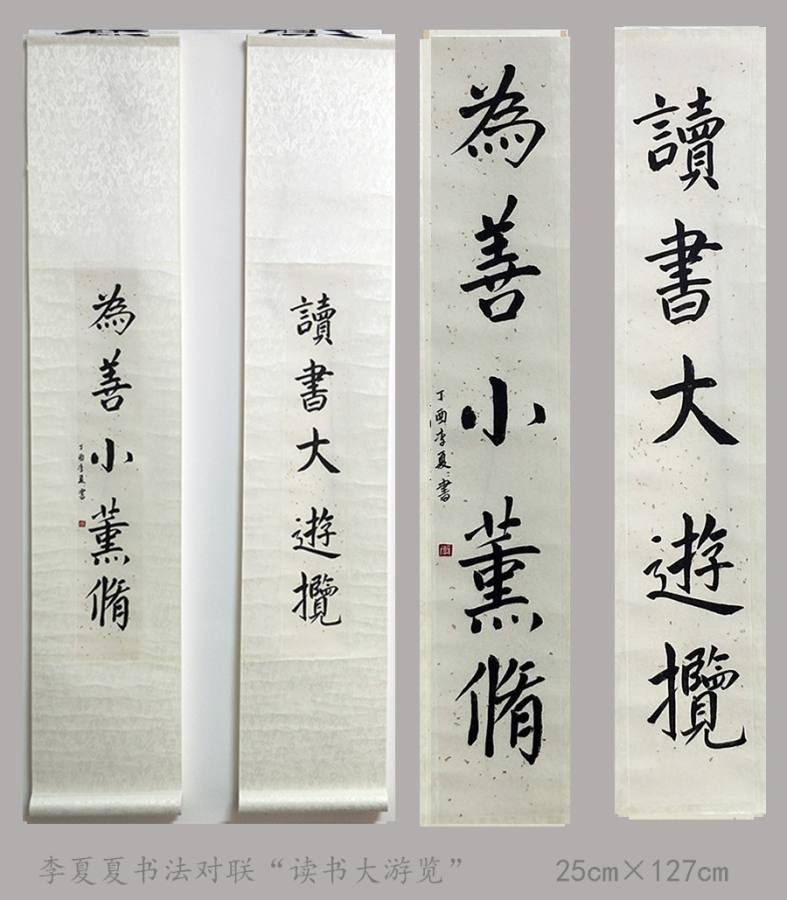 讀書大遊攬
為善小薰脩
丁酉李夏夏書
讀書大遊攬
為善小薰脩
丁酉李夏夏書
李夏夏书法对联“读书大游览” 25cm×127cm